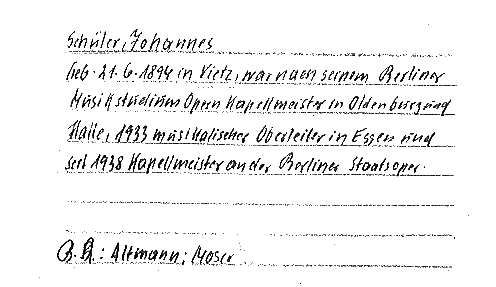 Schüler, Johannes
geb. 21.6.1894 in Vietz, war nach seinem Berliner
Musikstudium Opern Kapellmeister in Oldenburg und
Halle, 1933 musikalischer Oberleiter in Essen und
seit 1938 Kapellmeister an der Berliner Staatsoper.
: Altmann; Moser